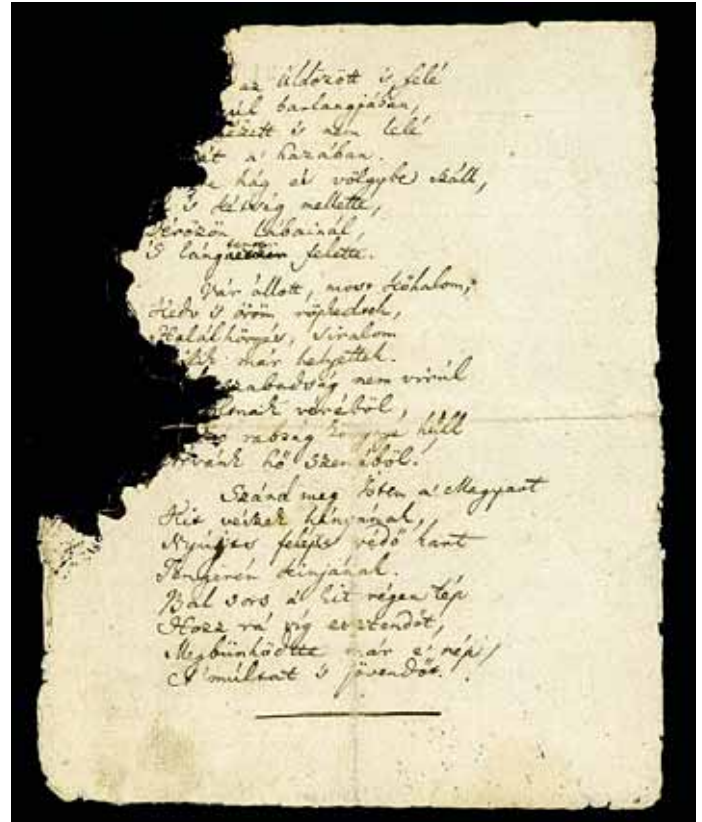 az üldözött 's felé
barlangjában,
nem lelé
a' hazában.
hág és völgybe száll,
's kétség mellette,
Vérözön lábainál,
'S lángtenger felette.
Vár állott, most kőhalom,
Kedv 's öröm röpkedtek,
Halálhörgés, siralom
már helyettek.
szabadság nem virúl
véréből,
rabság könnye hull
hő szeméből.
Szánd meg Isten a' Magyart
Kit vészek hányának,
Nyújts feléje védő kart
Tengerén kínjának.
Bal sors a' kit régen tép
Hozz rá víg esztendőt,
Megbünhödte már e' nép
A' múltat 's jövendőt.